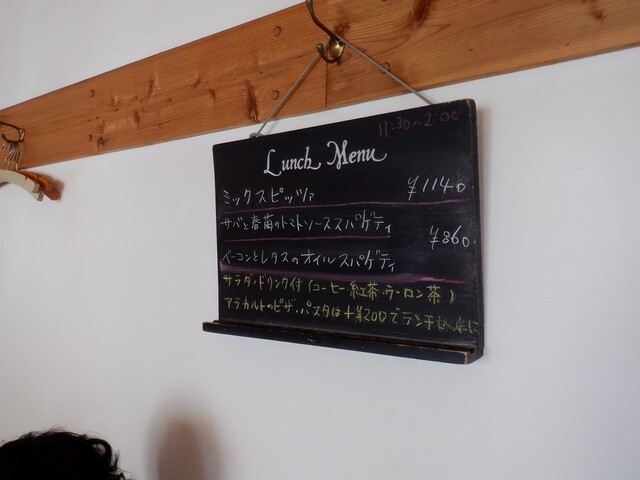 11:30~2:00
Lunch Menu
ミックスピッツァ ¥1140.
サバと春菊のトマトソーススパゲティ
¥860.
ベーコンとレタスのオイルスパゲティ
サラダ・ドリンク付 (コーヒー・紅茶・ウーロン茶)
アラカルトのピザ・パスタは+¥200でランチ